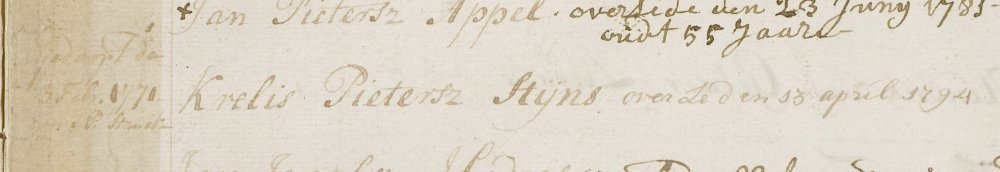 Jan Pietersz Appel. overlede den 23 Juny 1785
oudt 55 Jaare
Gedoopt de
3 Feb. 1771
Krelis Pietersz Stÿns overleden 13 april 1794